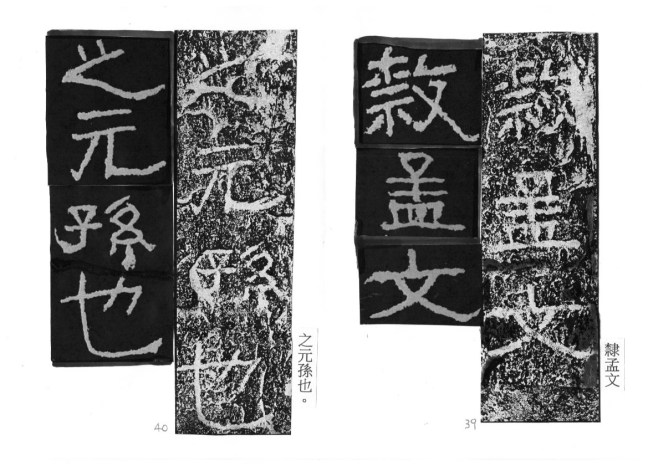 隸孟文
隸孟文
隸孟文
39
之元孫也。
之元孫也
之元孫也
40